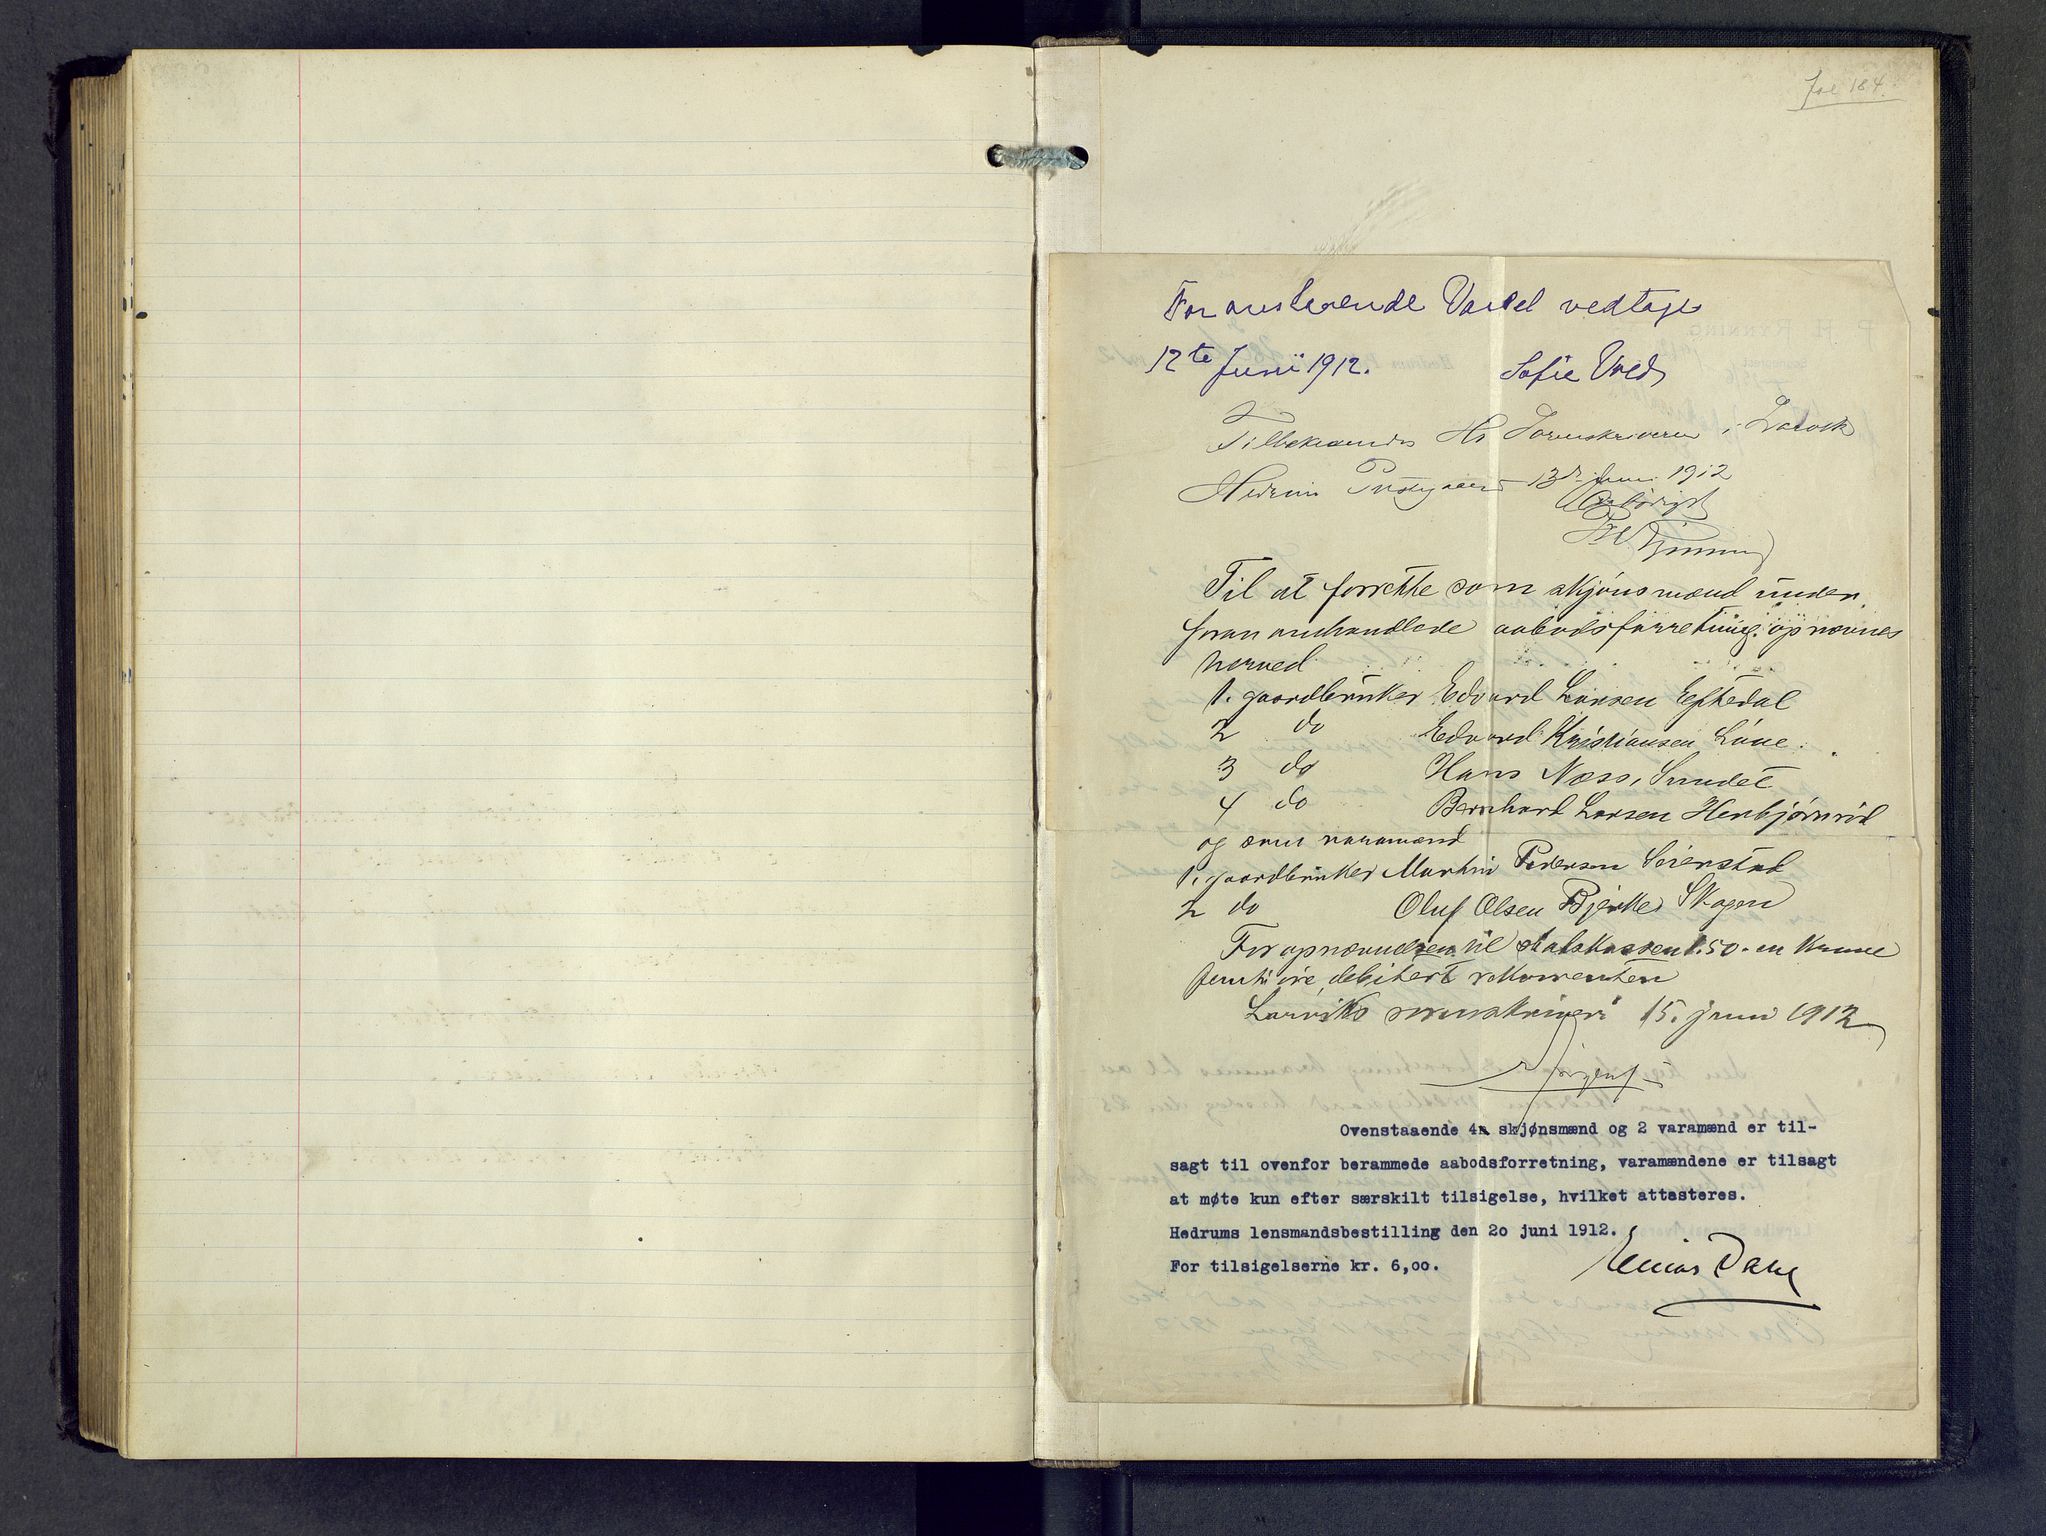 Fol 184.
Foranstaaende Varsel vedtages
12te Juni 1912. Sofie Vred
Tilbakesendes Hr Sorenskriveren i Larvik
Hedrum Prestegaard 13de Juni 1912
Ærbødigst
Til at forrette som skjønsmænd under
foran omhandlede aabodsforretning opnævnes
herved
1. gaardbruker Edvard Larsen Eftedal
2 do Edvard Kristiansen Løve.
3 do Hans Næss, Sundet
4 do Bernhard Larsen Herbjørnrød
og som varamænd
1. gaardbruker Martin Pedersen Seierstad
2 do Oluf Olsen Bjerke Skogen
For opnævnelsen til statskassen 1.50 - en krone
femti øre, debitert rekvirenten
Larviks sorenskriveri 15. juni 1912
Ovenstaaende 4 skjønsmænd og 2 varamænd er til-
sagt til ovenfor berammede aabodsforretning, varamændene er tilsagt
at møte kun efter særskilt tilsigelse, hvilket attesteres.
Hedrums lensmandsbestilling den 20 juni 1912.
For tilsigelserne kr. 6,00.
Einar Dahl